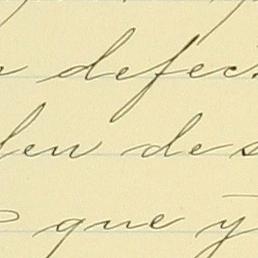 defec
den des
que y